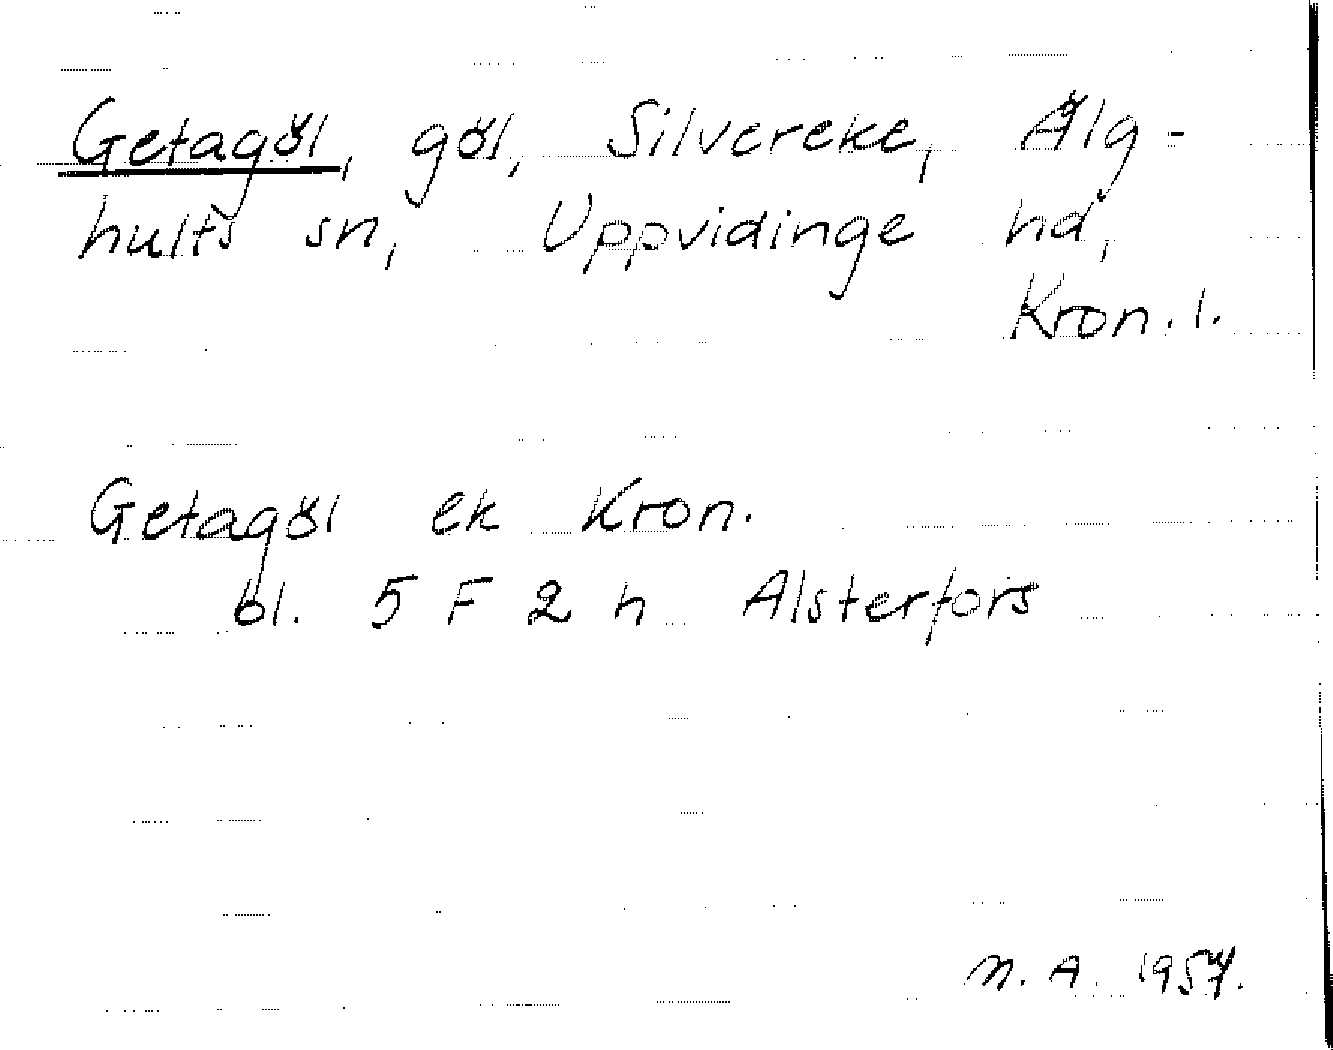 Getagöl, göl, Silvereke, Älg-
hults sn, Uppvidinge hd,
Kron. l.
Getagöl ek Kron.
bl. 5 F 2 h Alsterfors
N. A. 1957.